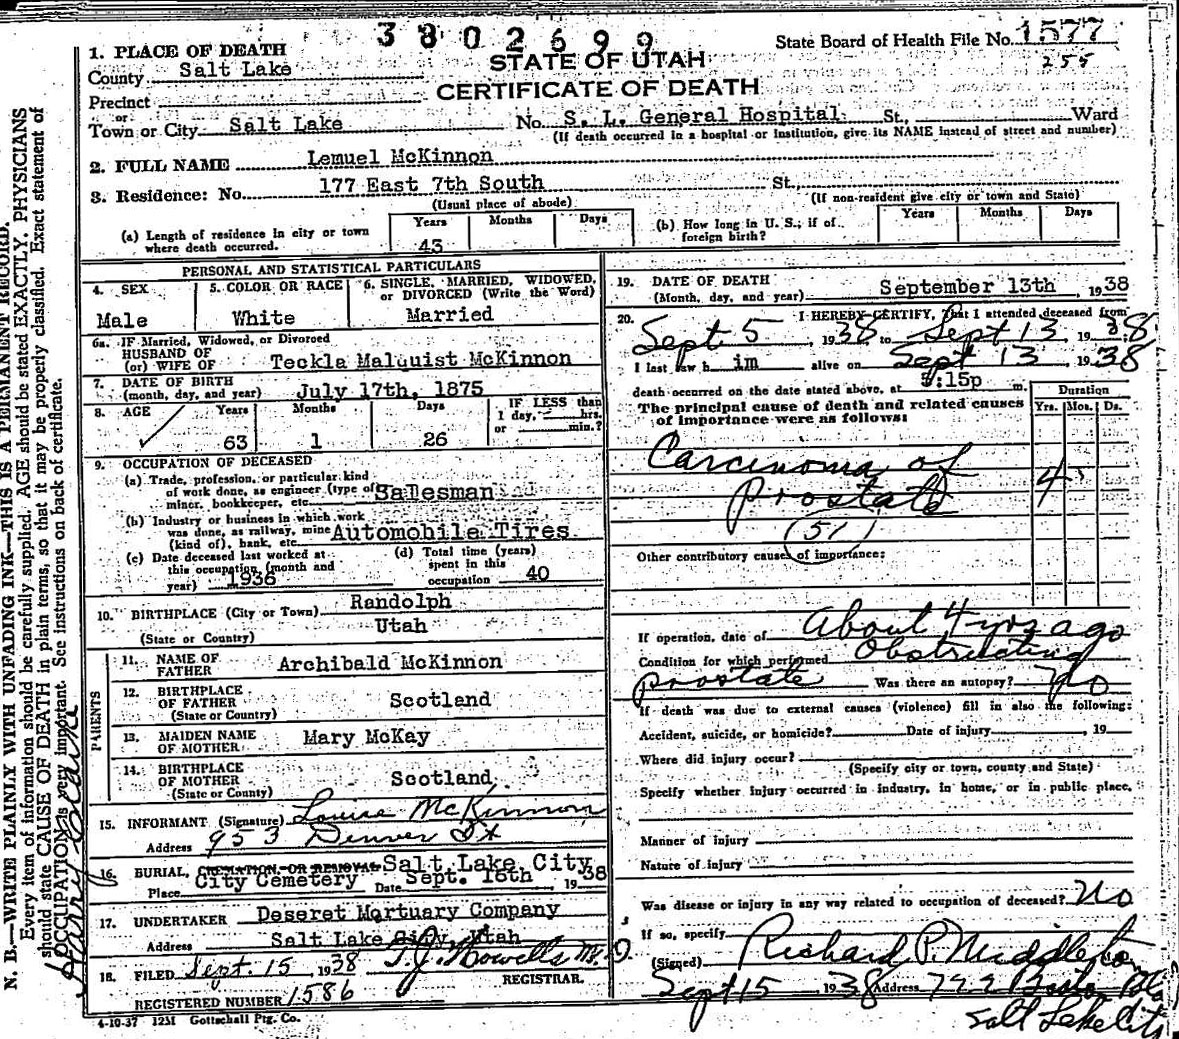 3802699
State Board of Health File No. 1577
255
STATE OF UTAH
CERTIFICATE OF DEATH
1. PLACE OF DEATH
County Salt Lake
Precinct
or
Town or City Salt Lake No. S. L. General Hospital St., Ward
(If death occurred in a hospital or institution, give its NAME instead of street and number)
2. FULL NAME Lemuel McKinnon
3. Residence: No. 177 East 7th South St.,
(Usual place of abode) (If non-resident give city or town and State)
(a) Length of residence in city or town where death occurred. Years 43 Months Days
(b) How long in U. S., if of foreign birth? Years Months Days
PERSONAL AND STATISTICAL PARTICULARS
4. SEX Male
5. COLOR OR RACE White
6. SINGLE, MARRIED, WIDOWED, or DIVORCED (Write the Word) Married
6a. IF Married, Widowed, or Divorced
HUSBAND OF
(or) WIFE OF Teckla Malquist McKinnon
7. DATE OF BIRTH
(month, day, and year) July 17th, 1875
8. AGE Years 63 Months 1 Days 26 IF LESS than 1 day, hrs. or min.?
9. OCCUPATION OF DECEASED
(a) Trade, profession, or particular kind
of work done, as engineer (type of) Salesman
miner, bookkeeper, etc.
(b) Industry or business in which work
was done, as railway, mine Automobile Tires
(kind of), bank, etc.
(c) Date deceased last worked at
this occupation (month and
year) 1936
(d) Total time (years)
spent in this
occupation 40
10. BIRTHPLACE (City or Town) Randolph
(State or Country) Utah
PARENTS
11. NAME OF FATHER Archibald McKinnon
12. BIRTHPLACE OF FATHER Scotland
(State or Country)
13. MAIDEN NAME OF MOTHER Mary McKay
14. BIRTHPLACE OF MOTHER Scotland
(State or Country)
15. INFORMANT (Signature) Louise McKinnon
Address 953 Denver St
16. BURIAL, CREMATION OR REMOVAL Salt Lake City
Place City Cemetery Date Sept. 16th 1938
17. UNDERTAKER Deseret Mortuary Company
Address Salt Lake City, Utah
18. FILED Sept. 15, 1938 T. J. Howells M. D.
REGISTRAR.
REGISTERED NUMBER 1586
4-10-37 12M Gottschall Ptg. Co.
19. DATE OF DEATH
(Month, day, and year) September 13th, 1938
20. I HEREBY CERTIFY, That I attended deceased from
Sept 5, 1938 to Sept 13, 1938
I last saw him alive on Sept 13, 1938
death occurred on the date stated above, at 5:15p m.
The principal cause of death and related causes of importance were as follows:
Duration
Yrs. Mos. Ds.
Carcinoma of
prostate 4
(51)
Other contributory causes of importance:
If operation, date of About 4 yrs ago
Condition for which performed Obstructing
prostate Was there an autopsy? No
If death was due to external causes (violence) fill in also the following:
Accident, suicide, or homicide? Date of injury , 19
Where did injury occur?
(Specify city or town, county and State)
Specify whether injury occurred in industry, in home, or in public place.
Manner of injury
Nature of injury
Was disease or injury in any way related to occupation of deceased? No
If so, specify
(Signed) Richard P. Middleton
Sept 15 1938 Address Boston Bldg
Salt Lake City
N. B.—WRITE PLAINLY WITH UNFADING INK—THIS IS A PERMANENT RECORD.
Every item of information should be carefully supplied. AGE should be stated EXACTLY. PHYSICIANS
should state CAUSE OF DEATH in plain terms, so that it may be properly classified. Exact statement of
OCCUPATION is very important. See instructions on back of certificate.